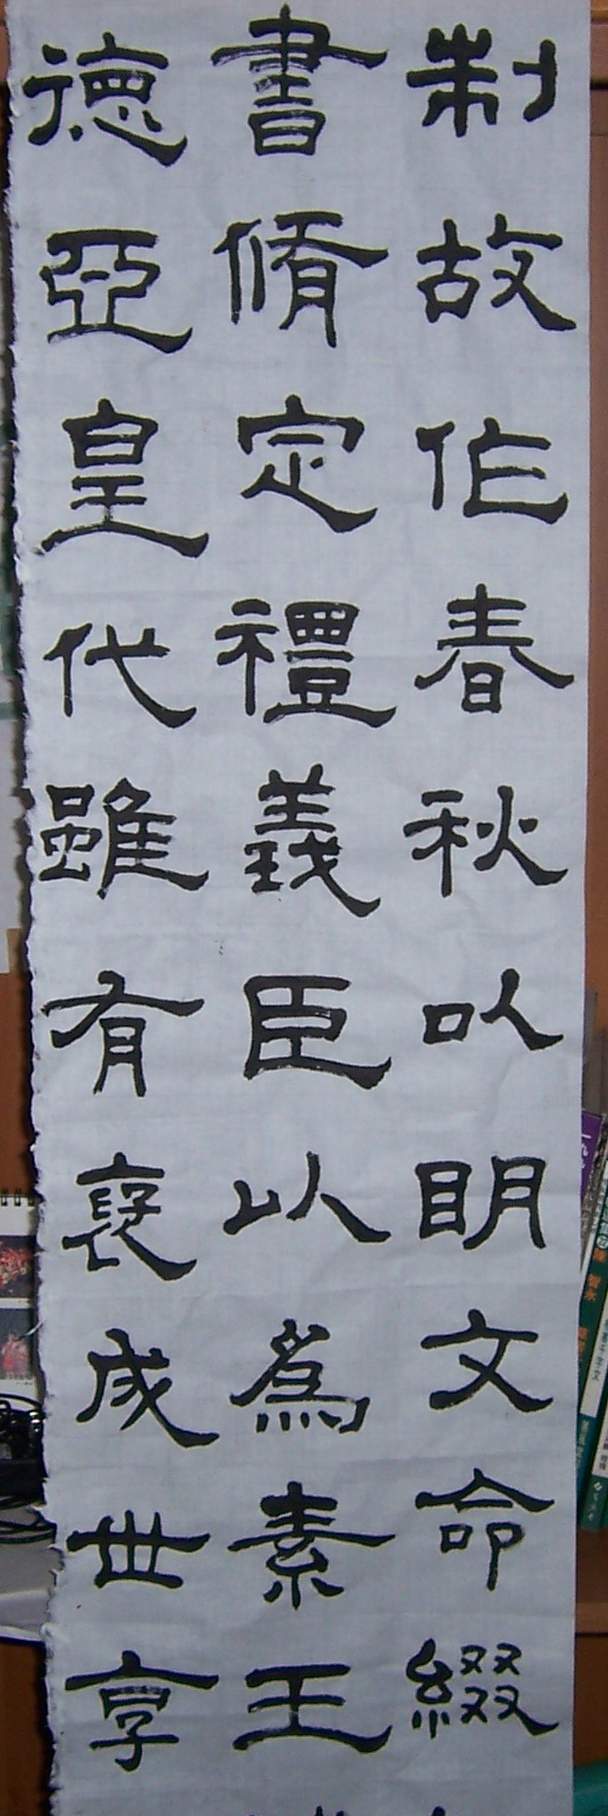 制故作春秋以明文命綴
書脩定禮義臣以為素王
德亞皇代雖有褒成世享